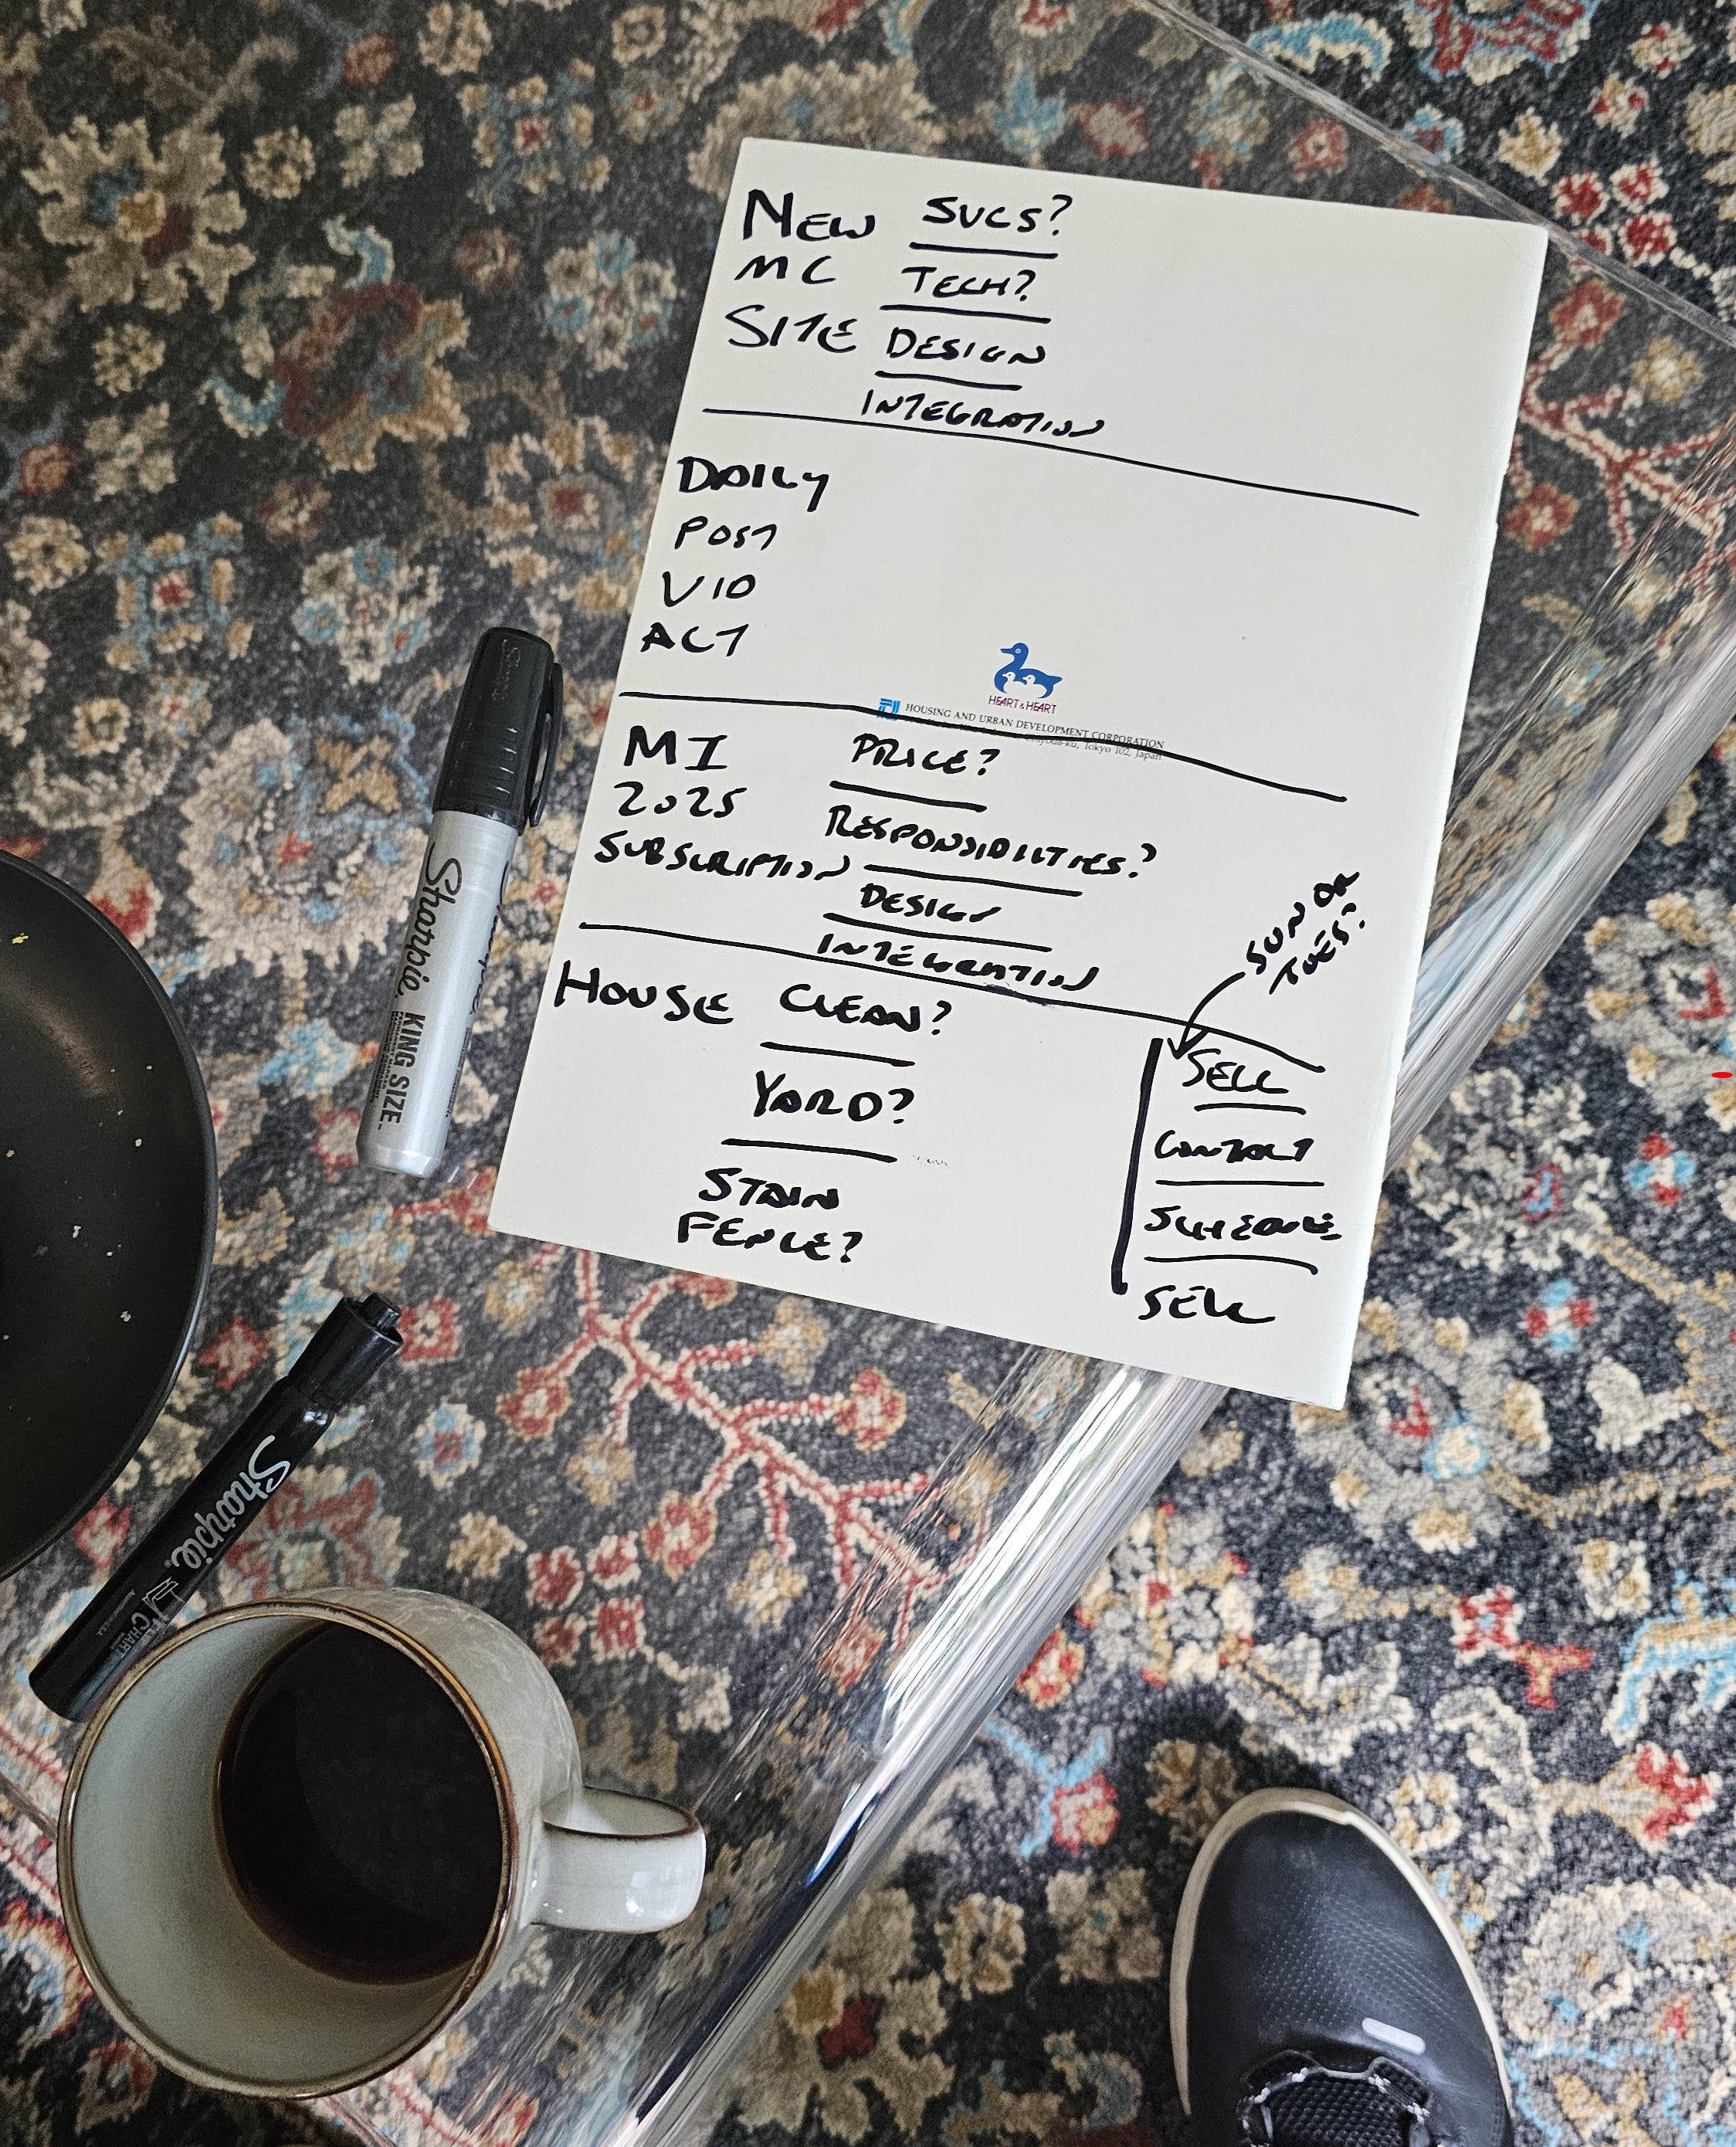 NEW SVCS?
MC TECH?
SITE DESIGN
INTEGRATION
DAILY
POST
VID
ACT
HEART & HEART
HOUSING AND URBAN DEVELOPMENT CORPORATION
Tokyo 102, Japan
MI PRICE?
2025 RESPONSIBILITIES?
SUBSCRIPTION
DESIGN
INTEGRATION
SUN OR
TUES?
HOUSE CLEAN?
YARD?
STAIN
FENCE?
SELL
CONTACT
SCHEDULE
SELL
Sharpie
KING SIZE
Sharpie
CHART